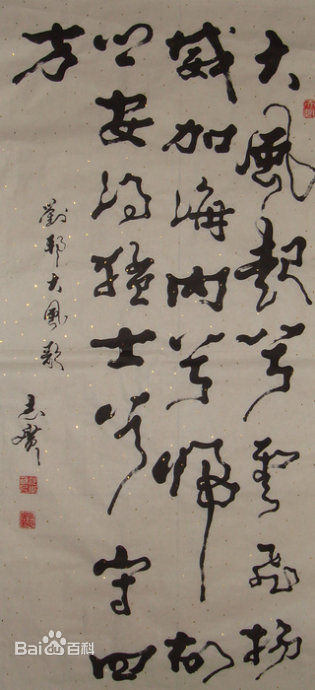 大風起兮雲飛揚
威加海内兮歸故
鄉安得猛士兮守四
方
劉邦大風歌
Bai百科